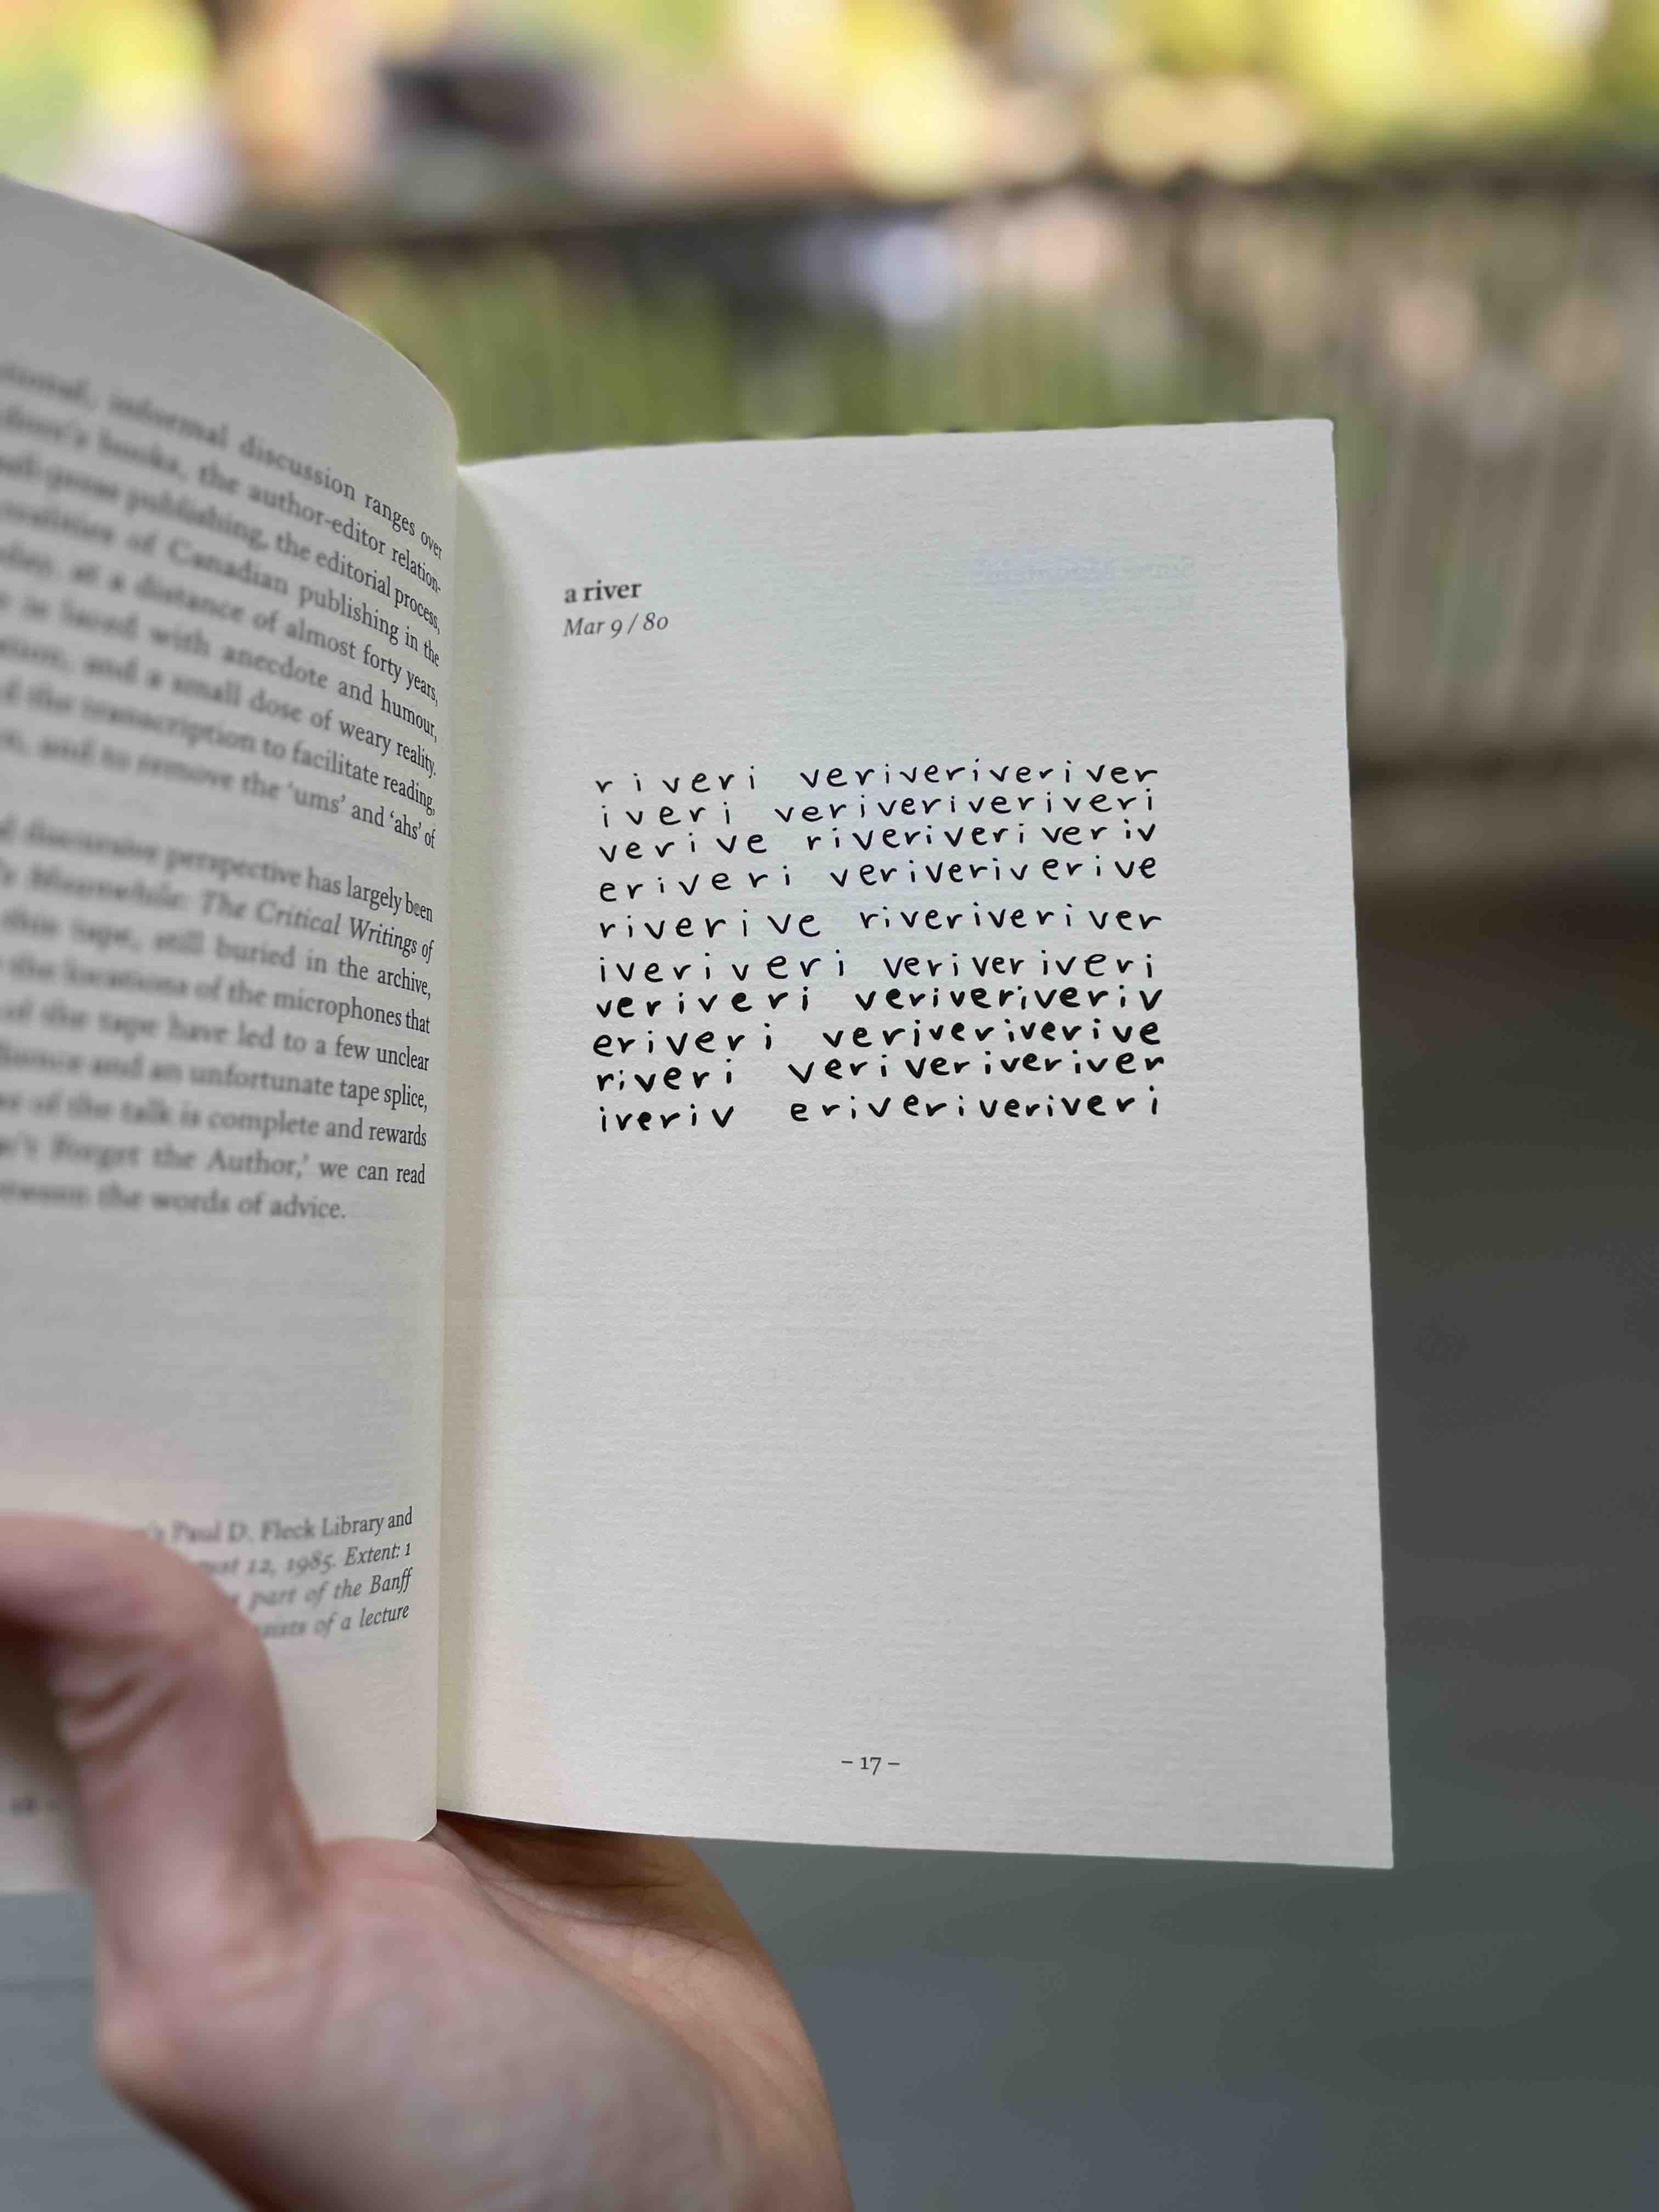 informal discussion ranges over
books, the author-editor relation-
publishing, the editorial process,
realities of Canadian publishing in the
at a distance of almost forty years,
is laced with anecdote and humour,
and a small dose of weary reality.
the transcription to facilitate reading,
and to remove the ‘ums’ and ‘ahs’ of
discursive perspective has largely been
Meanwhile: The Critical Writings of
this tape, still buried in the archive,
the locations of the microphones that
of the tape have led to a few unclear
and an unfortunate tape splice,
of the talk is complete and rewards
Forget the Author,’ we can read
between the words of advice.
Paul D. Fleck Library and
12, 1985. Extent: 1
part of the Banff
of a lecture
a river
Mar 9 / 80
riveri veriveriveriver
iveri veriveriveriveri
verive riveriveriveriv
eriveri veriveriverive
riverive riveriveriver
iveriveri veriveriveri
veriveri veriveriveriv
eriveri veriveriverive
riveri veriveriveriver
iveriv eriveriveriveri
– 17 –